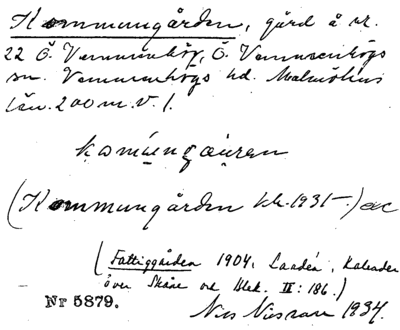 Kommungården, gård å nr.
22 Ö. Vemmenhög, Ö. Vemmenhögs
sn. Vemmenhögs hd. Malmöhus
län. 200 m. V. 1.
(Kommungården
(Fattiggården 1904. Landén, Kalender
över Skåne och Blek. II: 186.)
Nr 5879.
Nils Nilsson 1934.